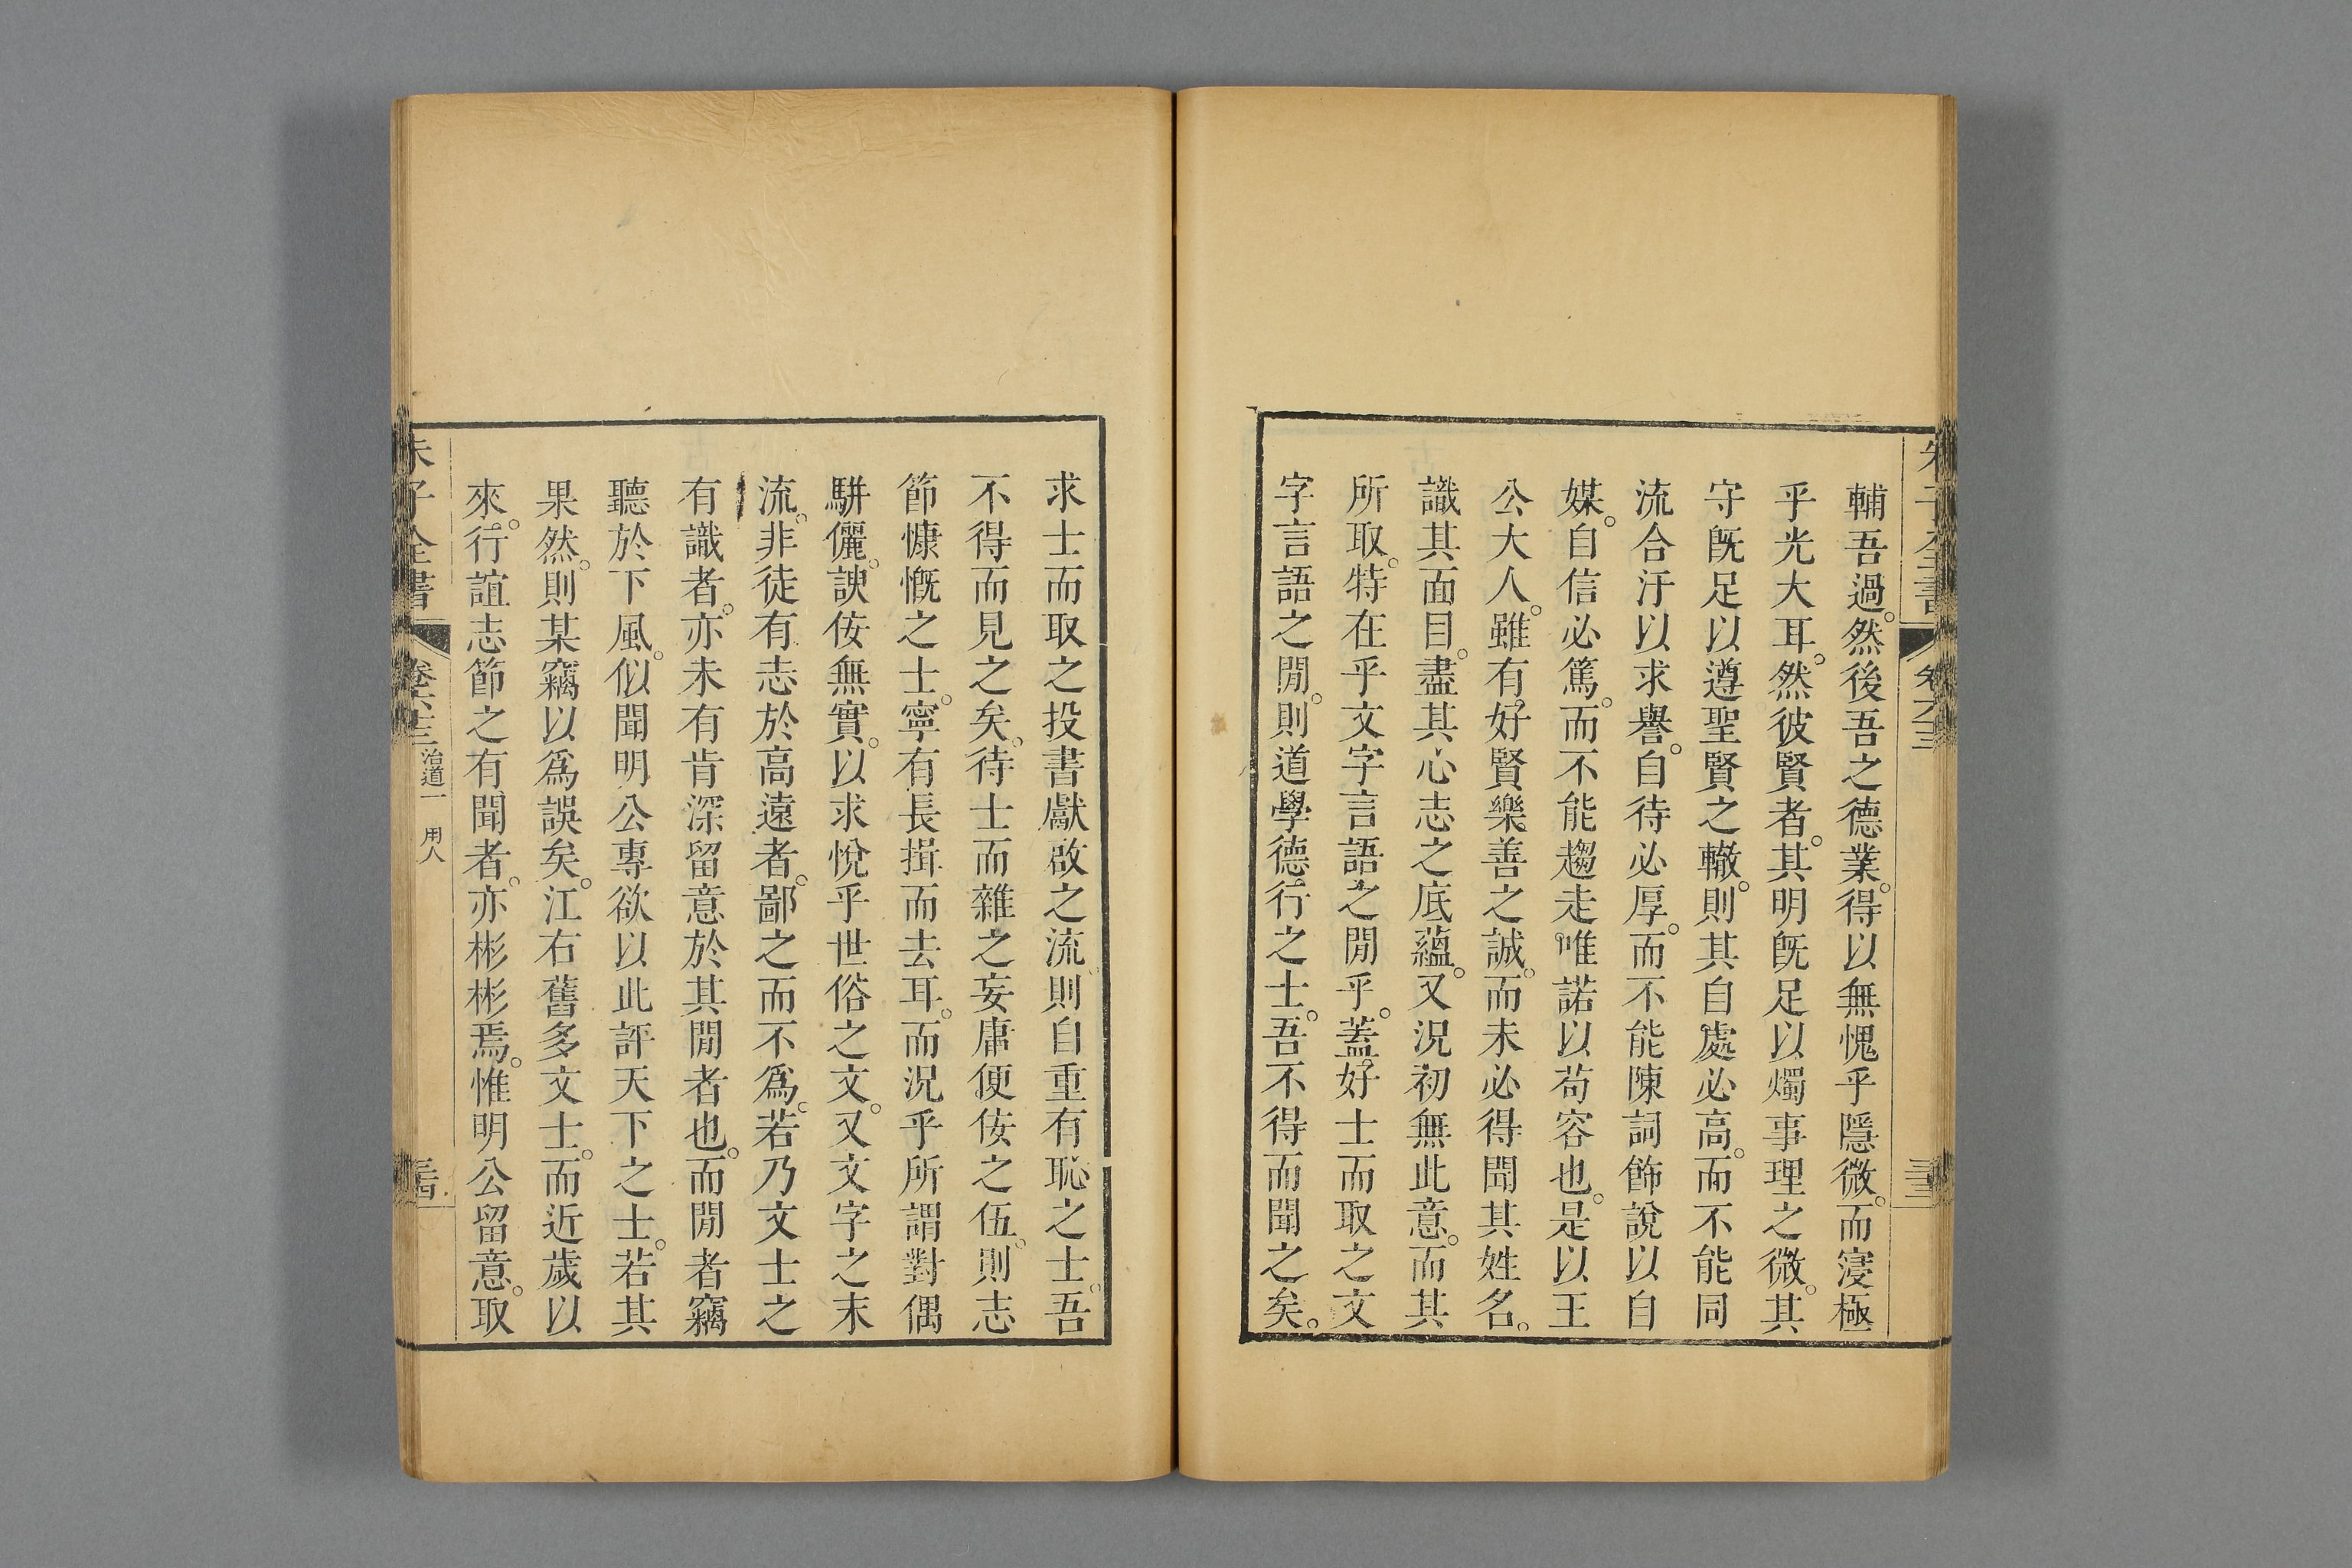 輔吾過。然後吾之德業。得以無愧乎隱微。而寖極
乎光大耳。然彼賢者。其明旣足以燭事理之微。其
守旣足以遵聖賢之轍。則其自處必高。而不能同
流合汙以求譽。自待必厚。而不能陳詞飾說以自
媒。自信必篤。而不能趨走唯諾以苟容也。是以王
公大人。雖有好賢樂善之誠。而未必得聞其姓名。
識其面目。盡其心志之底蘊。又況初無此意。而其
所取。特在乎文字言語之閒乎。蓋好士而取之文
字言語之閒。則道學德行之士。吾不得而聞之矣。
求士而取之投書獻啟之流。則自重有恥之士。吾
不得而見之矣。待士而雜之妄庸便佞之伍。則志
節慷慨之士。寧有長揖而去耳。而況乎所謂對偶
駢儷。諛佞無實。以求悅乎世俗之文。又文字之末
流。非徒有志於高遠者。鄙之而不爲。若乃文士之
有識者。亦未有肯深留意於其閒者也。而閒者竊
聽於下風。似聞明公專欲以此評天下之士。若其
果然。則某竊以爲誤矣。江右舊多文士。而近歲以
來。行誼志節之有聞者。亦彬彬焉。惟明公留意。取
朱子全書
卷六十三
治道一 用人